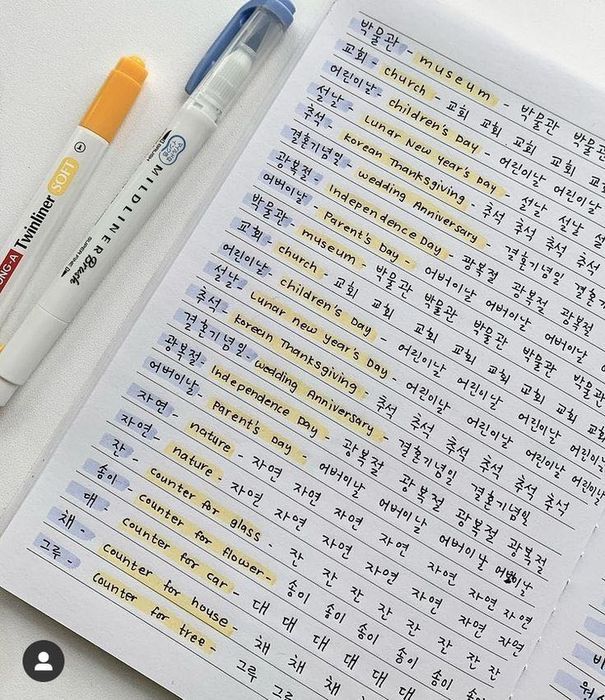 Twinliner SOFT
MILDLINER Brush
박물관 - museum - 박물관 박물관
교회 - church - 교회 교회 교회 교회
어린이날 - children's Day - 어린이날 어린이날
설날 - Lunar New Year's Day - 설날 설날
추석 - Korean Thanksgiving - 추석 추석 추석 추석
결혼기념일 - wedding Anniversary - 결혼기념일
광복절 - Independence Day - 광복절 광복절 광복절
어버이날 - Parent's Day - 어버이날 어버이날 어버이날
박물관 - museum - 박물관 박물관 박물관 박물관
교회 - church - 교회 교회 교회 교회 교회 교회
어린이날 - children's Day - 어린이날 어린이날 어린이날
설날 - Lunar new year's Day - 어린이날 어린이날 어린이날
추석 - Korean Thanksgiving - 추석 추석 추석 추석 추석 추석
결혼기념일 - wedding Anniversary - 결혼기념일 결혼기념일
광복절 - Independence Day - 광복절 광복절 광복절 광복절
어버이날 - Parent's Day - 어버이날 어버이날 어버이날 어버이날
자연 - nature - 자연 자연 자연 자연 자연 자연 자연
자연 - nature - 자연 자연 자연 자연 자연 자연
잔 - counter for glass - 잔 잔 잔 잔 잔 잔 잔
송이 - counter for flower - 송이 송이 송이 송이 송이
대 - counter for car - 대 대 대 대 대 대
채 - counter for house - 채 채 채 채
그루 - counter for tree - 그루 그루